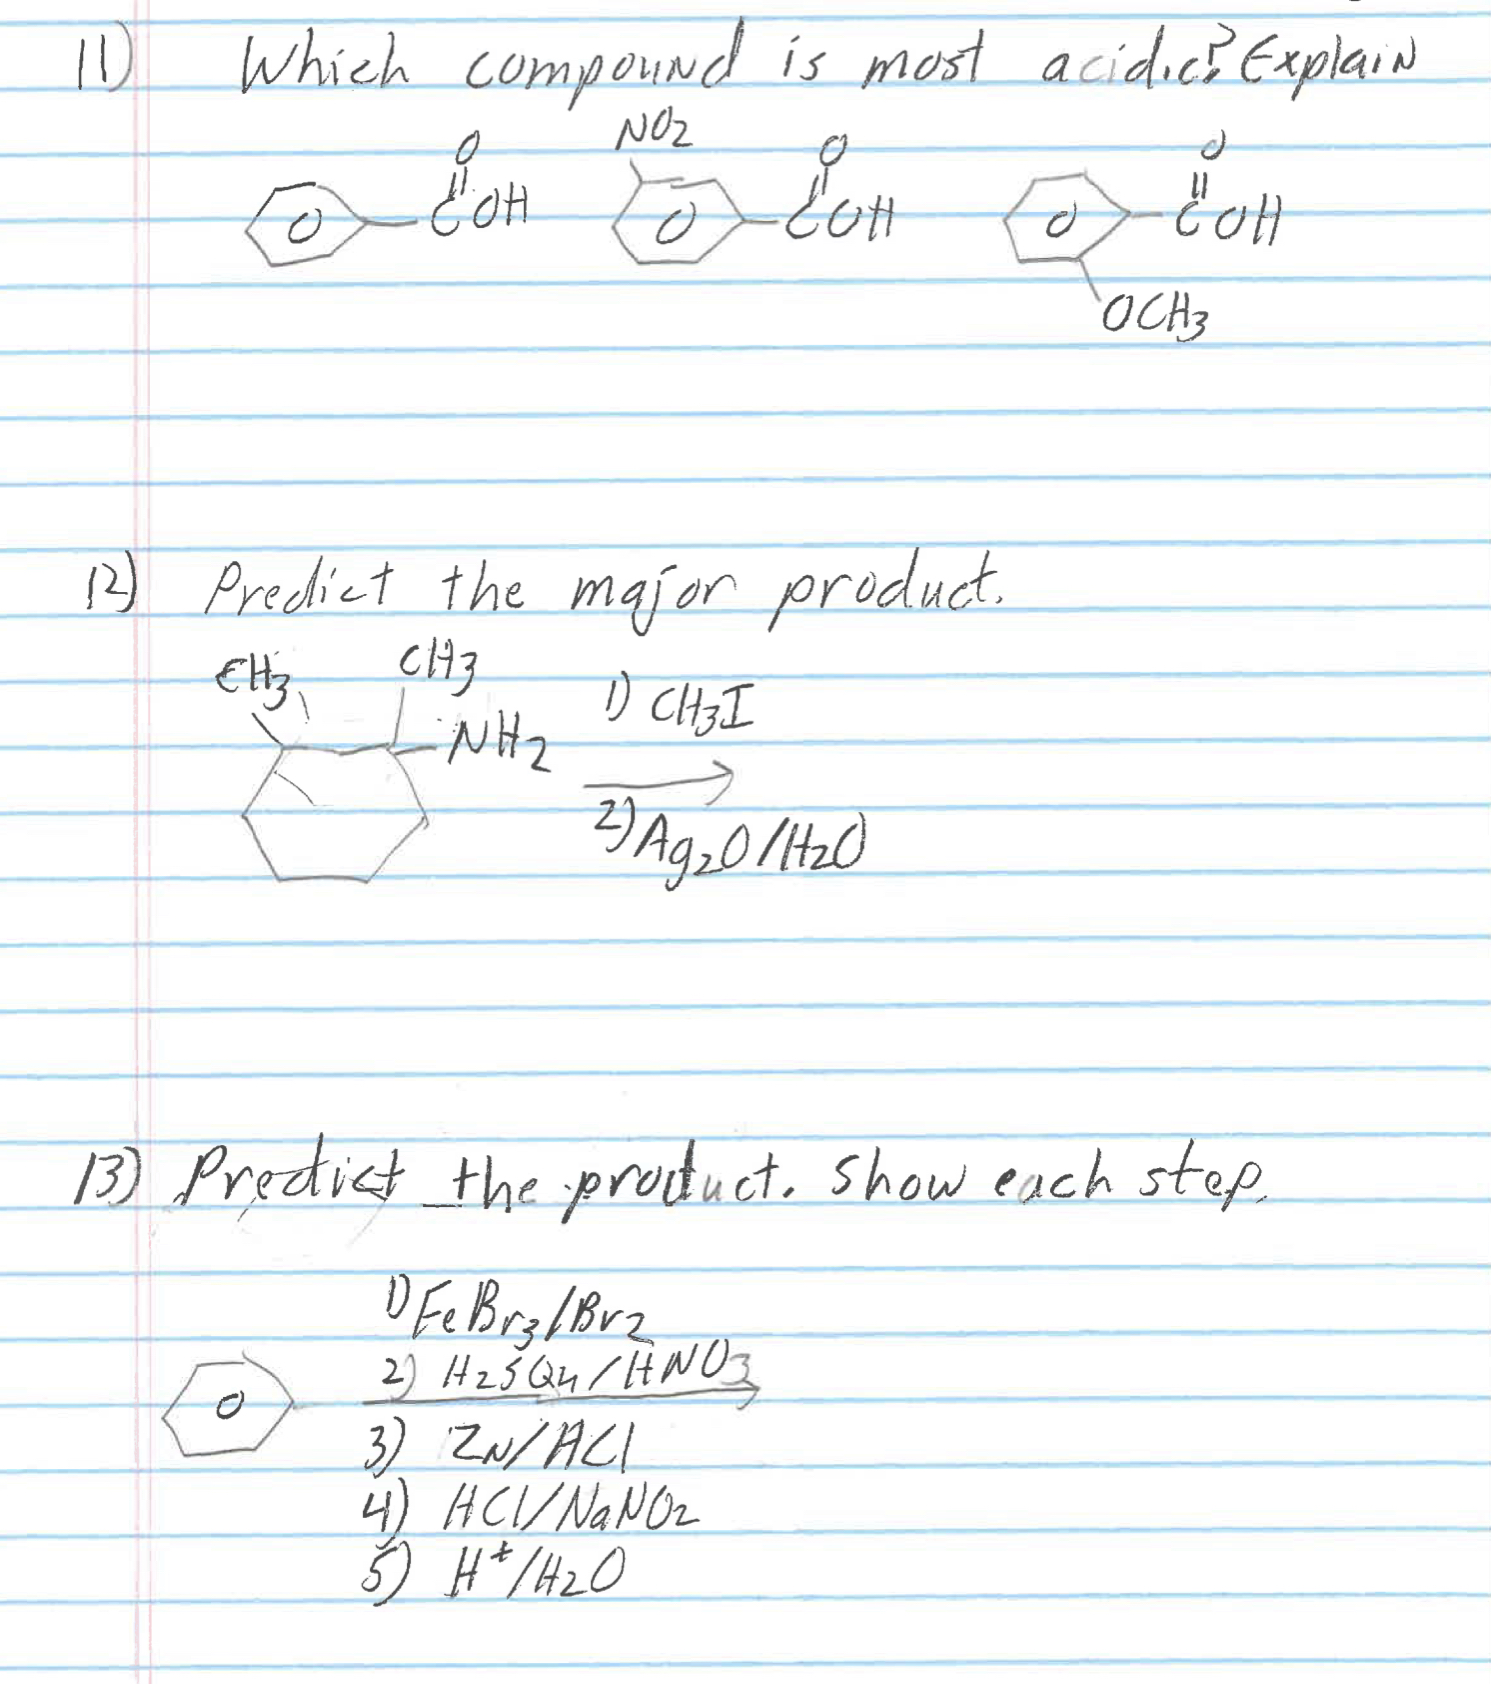 11) Which compound is most acidic? Explain
NO2
O O O
COH COH COH
OCH3
12) Predict the major product.
CH3 CH3
NH2 1) CH3I
2) Ag2O/H2O
13) Predict the product. Show each step.
1) FeBr3/Br2
2) H2SO4/HNO3
3) ZN/HCl
4) HCl/NaNO2
5) H+/H2O